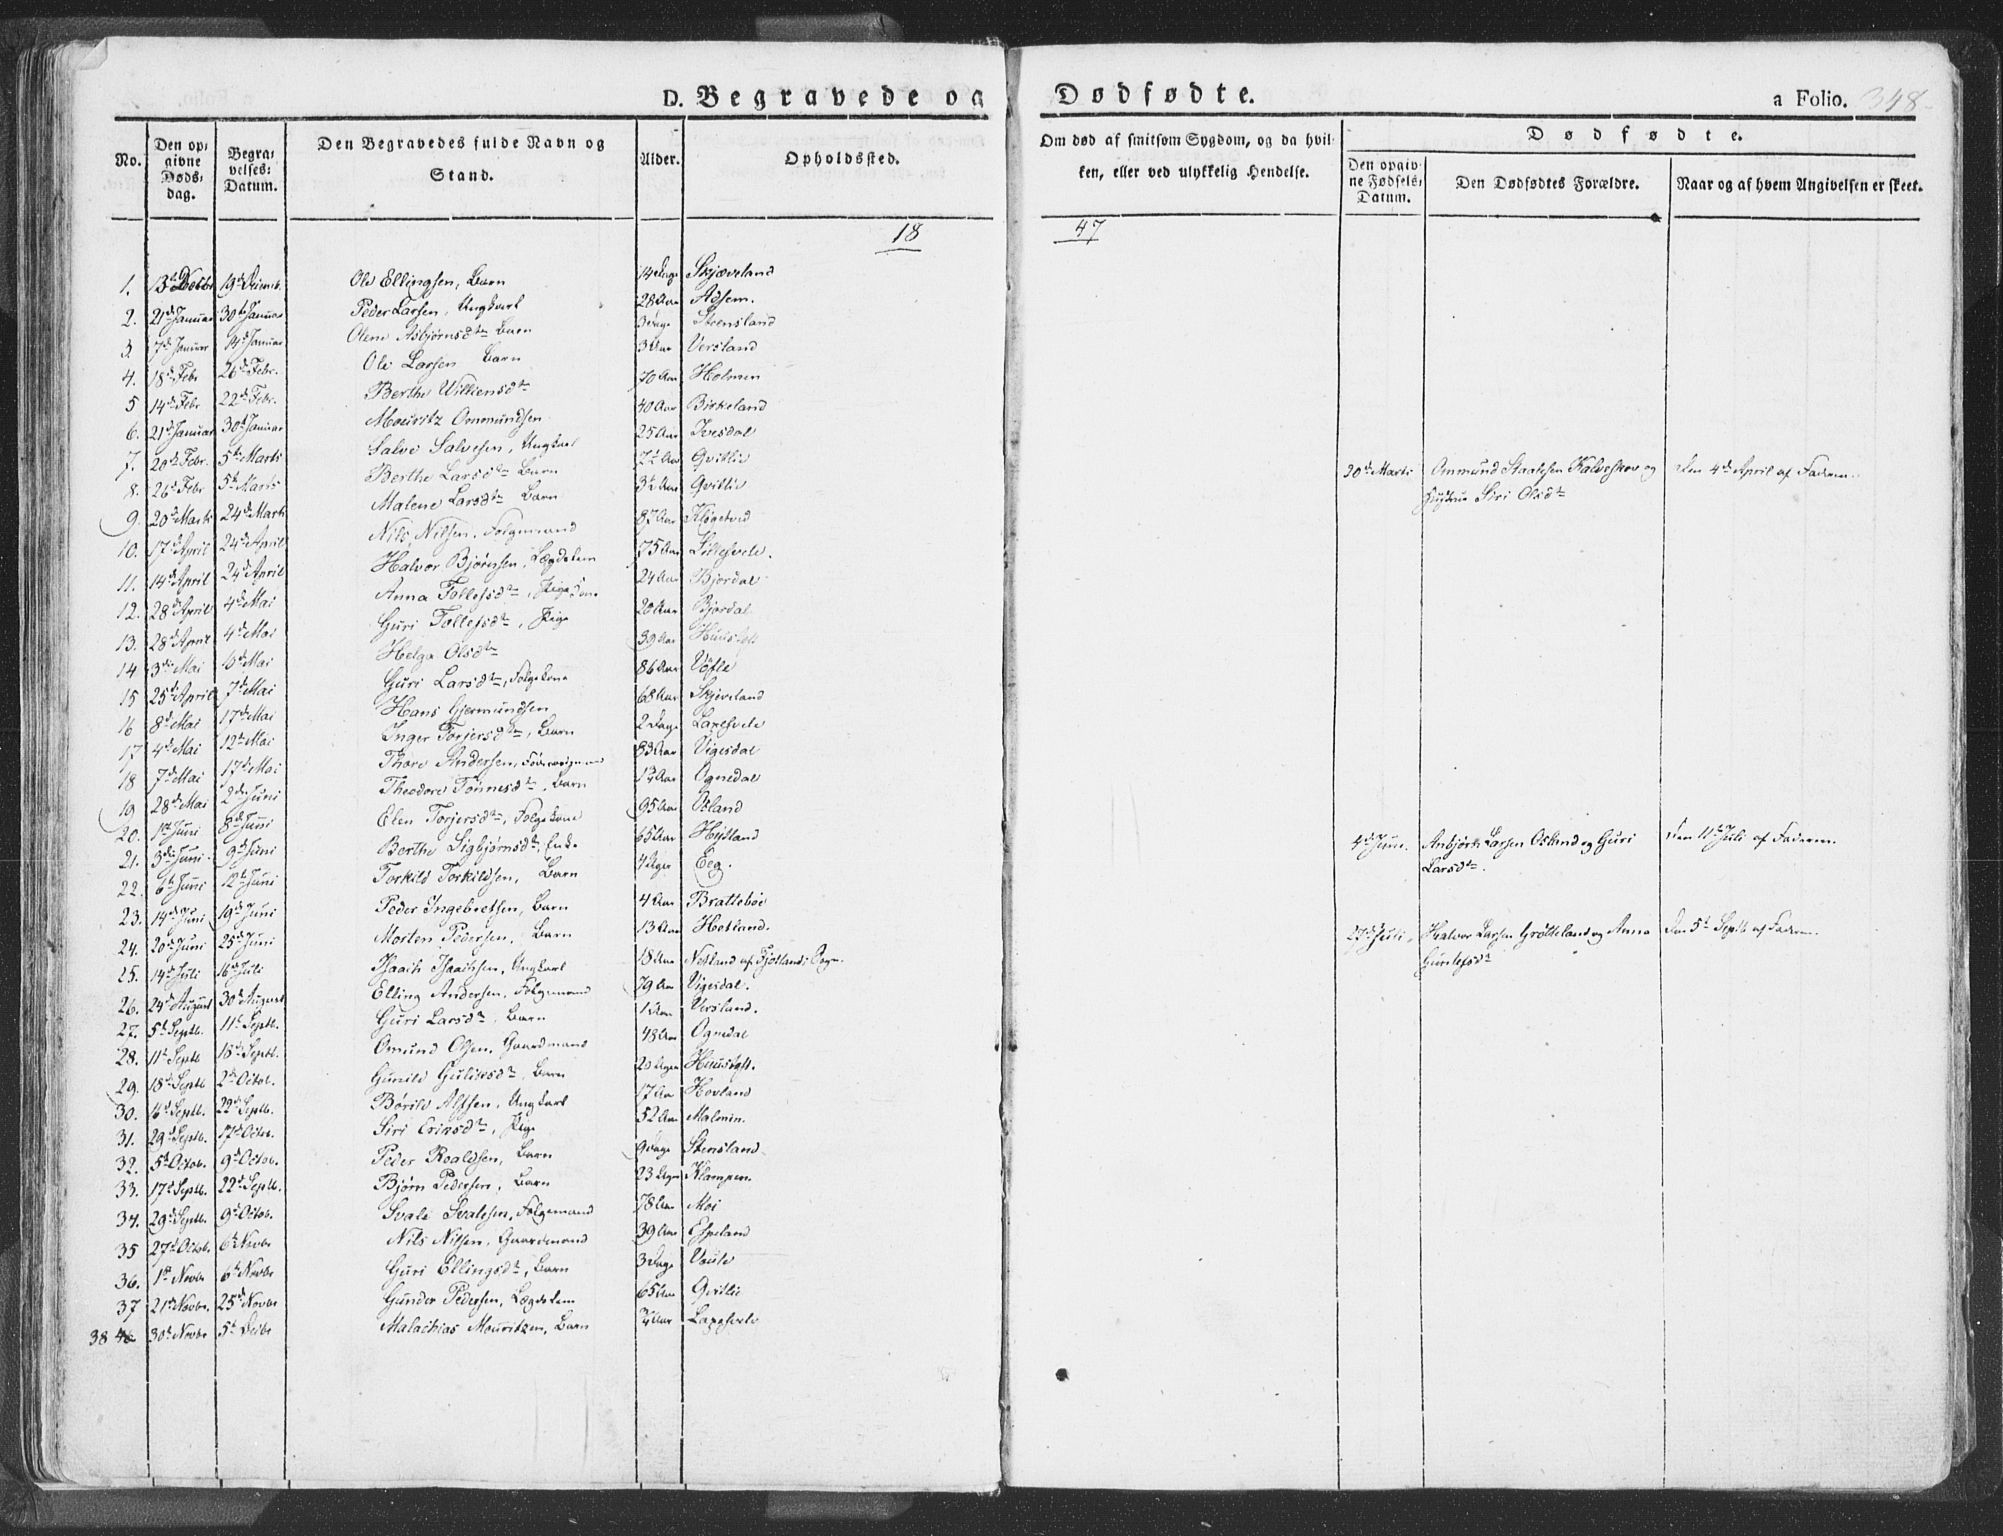 D. Begravede og Dødfødte.
a Folio. 348
No.
Den opgivne Døds-dag.
Begravelses-Datum.
Den Begravedes fulde Navn og Stand.
Alder.
Opholdssted.
Om død af smitsom Sygdom, og da hvilken, eller ved ulykkelig Hendelse.
Dødfødte.
Den opgivne Fødsels-Datum.
Den Dødfødtes Forældre.
Naar og af hvem Angivelsen er skeet.
18 47
1. 19d Decemb. Ole Ellingsen, Barn 14 Dage Skjæveland
2. 21d Januar 30t Januar Peder Larsen, Ungkarl 28 Aar Adsem.
3. 7d Januar 14d Januar Olene Asbjørnsdtr Barn 3 Dage Steensland
4. 18d Febr 26d Febr. Ole Larsen Barn 3 Aar Versland
5 14d Febr 22d Febr. Berthe Williensdtr 70 Aar Holmen
6. 21d Januar 30t Januar Mouritz Ommundsen 40 Aar Birkeland
7. 20d Febr. 5t Marts Salve Salvesen, Ungkarl 25 Aar Ivesdal
8. 26d Febr 5t Marts Berthe Larsdtr Barn Gvitlie
9. 20d Marts 24d Marts Malene Larsdtr Barn Gvitlie
10. 17d April 24d April Nils Nilsen, Folgemand 87 Aar Klogetvid
11. 14d April 24d April Halvor Bjørnsen, Lægdslem 75 Aar Littlesvele.
12. 28d April 4d Mai Anna Tollefsdtr, Pige 24 Aar Bjordal
13. 28d April 4d Mai Guri Tollefsdtr, Pige 20 Aar Bjordal
14 3di Mai 6d Mai Helga Olsdtr 39 Aar
15 25d April 7d Mai Guri Larsdtr, Folgekone 86 Aar
16 8d Mai 17d Mai Hans Gjermundsen 68 Aar Skjeveland
17 4d Mai 12t Mai Inger Torjersdtr, Barn 2 Dage Laxesvele
18 7d Mai 17d Mai Thore Andersen, 83 Aar Vigesdal
19 28d Mai 2den Juni Theodore Tønnesdtr, Barn Ognedal
20. 1st Juni 8d Juni Elen Torjersdtr, Folgekone 95 Aar Osland
21. 3di Juni 9d Juni Berthe Sigbjørnsdtr, Enke 65 Aar Hejtland
22. 6t Juni 12t Juni Torkild Torkildsen, Barn 4 Uger Eeg.
23. 14d Juni 19d Juni Peder Ingebretsen, Barn 4 Aar Brattebøe
24. 20d Juni 25d Juni Morten Pedersen, Barn 13 Aar Hetland.
25. 14d Juli 16d Juli Isaach Isaachsen, Ungkarl 18 Aar Netland af Fjotlands Sogn.
26. 24d August 30d August Elling Andersen, Folgemand 79 Aar Vigesdal.
27. 5t Septb. 11t Septb. Guri Larsdtr, Barn 1 Aar Versland.
28. 11t Septb 18d Septb. Omund Olsen, Gaardmand 48 Aar Ognedal
29. 18d Septb 2d Octob. Gunild Guliksdtr, Barn 20 Uger
30. 16d Septb. 22d Septb. Børild Alfsen, Ungkarl 17 Aar Hovland
31. 29d Septb. 17d Octob. Siri Eriksdtr, Pige 52 Aar Malmin.
32. 5t Octob. 9d Octob. Peder Roaldsen, Barn 9 Dage Stensland
33. 17d Septb. 22d Septb. Bjørn Pedersen, Barn 23 Uger Klampen.
34. 29d Septb. 9d Octob. Svale Svalesen, Folgemand 78 Aar Moi
35 27d Octob. 6t Novbr Nils Nilsen, Gaardmand 39 Aar Espeland
36. 1st Novbr 6t Novbr Guri Ellingsdtr, Barn 3 Dage Vaule
37 21d Novbr. 25d Novbr Gunder Pedersen, Lægdslem 65 Aar Gvitlie
38 30d Novbr 5t Decbr Malachias Mouritzen, Barn Laxesvele
30d Marts Ommund Staalesen Kalveskov og Den 4d April af Faderen.
Hustrue Siri Olsdtr
4d Juni. Asbjørn Larsen Osland og Guri Den 11t Juli af Faderen.
Larsdtr.
29d Juli. Halvor Larsen Grøtteland og Anna Den 5t Septb af Faderen.
Gunlefsdtr